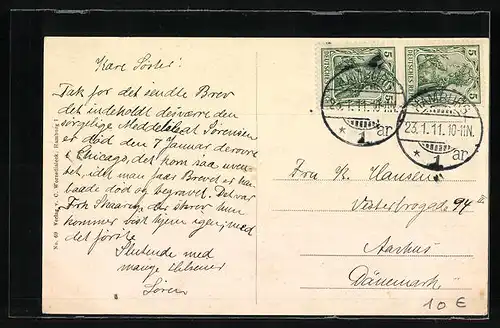 Kære Søster!
Tak for det sendte Brev
det indeholdt desværre den
sørgelige Meddelelse at Sørensen
er død den 7 Januar derovre
i Chicago, det kom saa uven-
tet, idet man faar Brevet er han
baade død og begravet. Det var
Frk. der skrev hun
kommer vist hjem igen med
det første.
Sluttende med
mange Hilsener
Søren
No. 69 Verlag v. C. Worzedialeck, Hamburg 1
DEUTSCHES REICH 5 5
DEUTSCHES REICH 5 5
HAMBURG
23.1.11.10-11N.
* 1 ar
HAMBURG
23.1.11.10-11N.
* 1 ar
Fru K. Hansen
Vesterbrogade 94 III
Aarhus
Dänemark
10 €